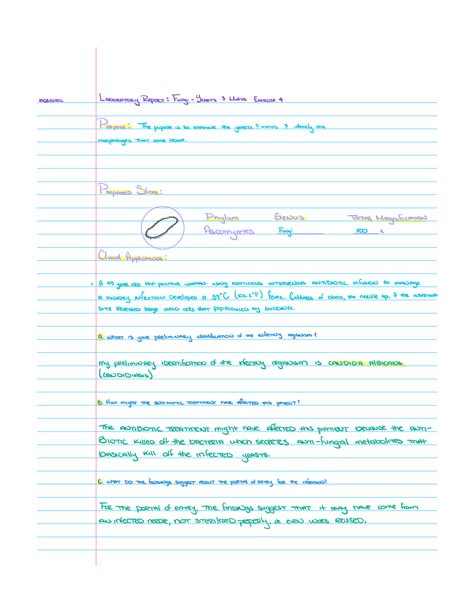 Laboratory Report: Fungi - Yeasts & Molds Exercise 4
Purpose: The purpose is to examine the yeasts & molds & identify the
morphologies that are
Prepared Slides:
Phylum Genus Total Magnification
Ascomycetes Fungi x
Clinical Applications:
A HIV positive woman using continuous intravenous antibiotic infusion to manage
a kidney infection developed a (°F) fever. Cultures of blood, the needle tip, & the
site revealed large ovoid cells that reproduced by budding.
A. What is your preliminary identification of the infecting organism?
My preliminary identification of the infecting organism is Candida Albicans
(Candidiasis)
B. How might the antibiotic treatment have affected this patient?
The antibiotic treatment might have affected this patient because the anti-
biotic killed off the bacteria which secretes anti-fungal metabolites that
basically kill off the infected yeasts.
C. What do the findings suggest about the portal of entry for the infection?
For the portal of entry, the findings suggest that it may have come from
an infected needle, not sterilized properly, or even was reused.